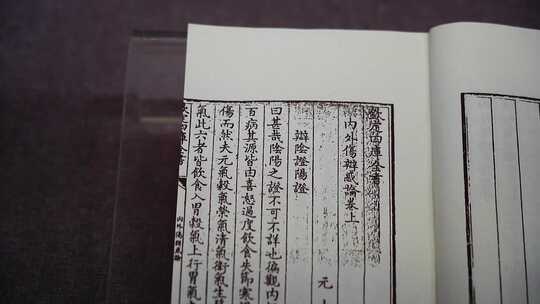 欽定四庫全書
內外傷辯惑論卷上
元
辯陰證陽證
曰甚哉陰陽之證不可不詳也徧觀內
百病其源皆由喜怒過度飲食失節寒
傷而然夫元氣穀氣榮氣清氣衛氣生
氣此六者皆飲食入胃穀氣上行胃氣
四庫全書
內外傷辯惑論